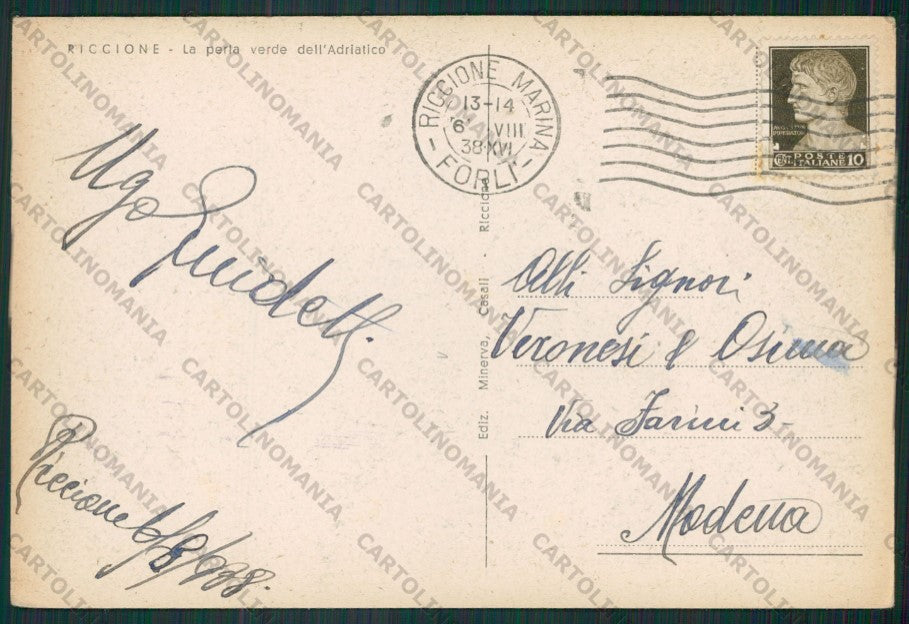 RICCIONE - La perla verde dell'Adriatico
RICCIONE MARINA
13-14
6 VIII
38·XVI
- FORLI -
AVGVSTVS
IMPERATOR
CENT. POSTE ITALIANE 10
Ugo Guidetti.
Riccione 6/8/938.
Ediz. Minerva, Casali - Riccione
Alli Signori
Veronesi e Osima
Via Farini 3
Modena
CARTOLINOMANIA